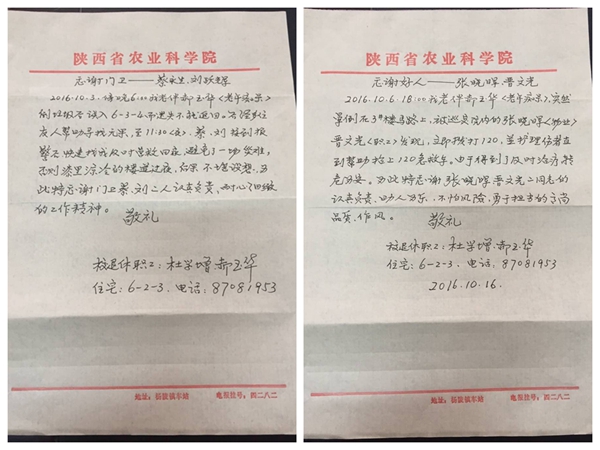 陕西省农业科学院
感谢门卫——蔡永生.刘跃辉
2016.10.3.傍晚6:00我老伴郝玉华(老年痴呆)
倒垃圾不误入6-3-4
夜人帮助寻找无果,至11:30(夜).蔡.刘接到报
警后快速找我及时营救回家,避免了一场灾难,
否则漆黑凉冷的楼道过夜,后果不堪设想.为
此特感谢门卫蔡.刘二人认真负责,
的工作精神.
敬礼
校退休职工:杜学增.郝玉华
住宅:6-2-3.电话:87081953
地址:杨陵镇东站 电报挂号:四二八二
陕西省农业科学院
感谢好人——张晓辉.晋文光
2016.10.6.18:00我老伴郝玉华(老年痴呆),突然
晕倒在3#楼马路上,被巡逻院内的张晓辉(物业)
晋文光(职工)发现,立即拨打120,并护理伤者直
到帮助抬上120急救车.由于得到了及时治疗转
危为安.为此特感谢张晓辉晋文光二同志的
认真负责.助人为乐.不怕风险.勇于担当的高尚
品质.作风.
敬礼
校退休职工:杜学增.郝玉华
住宅:6-2-3.电话:87081953
2016.10.16.
地址:杨陵镇东站 电报挂号:四二八二